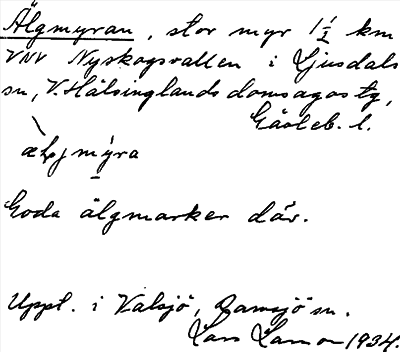 Älgmyran, stor myr 1 1/2 km
VNV Nyskogsvallen i Ljusdals
sn, V. Hälsinglands domsagas tg,
Gävleb. l.
myra
Goda älgmarker där.
Uppl. i Valsjö, Ramsjö sn.
Lars 1934.